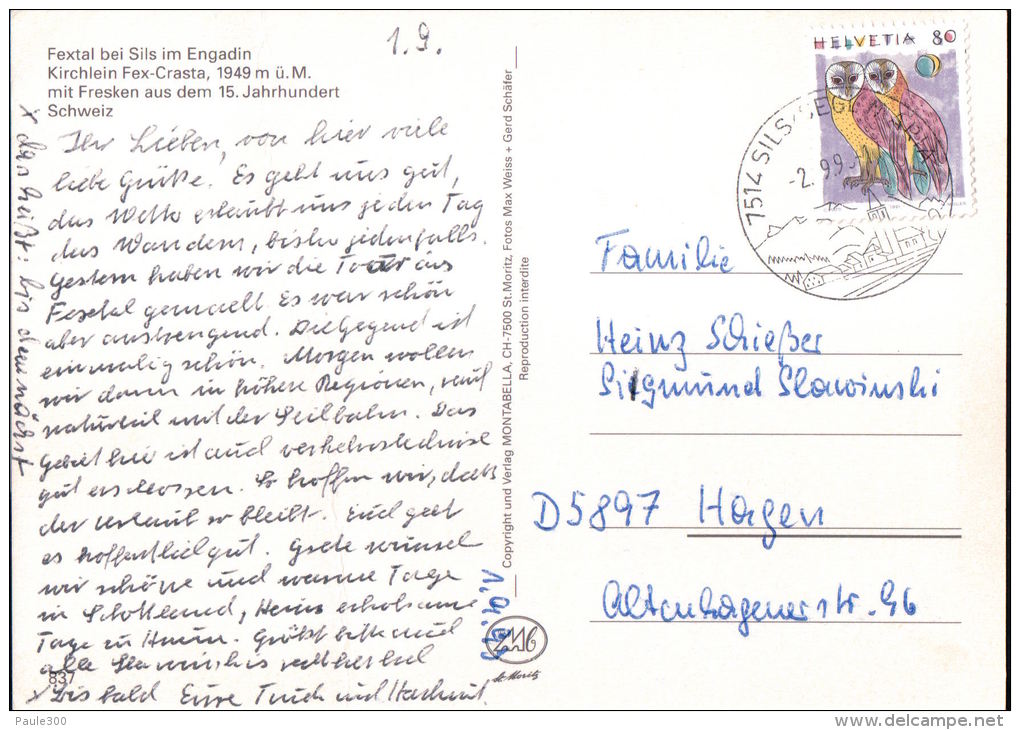 Fextal bei Sils im Engadin
Kirchlein Fex-Crasta, 1949 m ü. M.
mit Fresken aus dem 15. Jahrhundert
Schweiz
1.9.
Ihr Lieben, von hier viele
liebe Grüße. Es geht uns gut,
das Wetter erlaubt uns jeden Tag
das Wandern, bisher jedenfalls.
Gestern haben wir die Tour ins
Fextal gemacht. Es war schön
aber anstrengend. Die Gegend ist
einmalig schön. Morgen wollen
wir dann in höhere Regionen, rauf
natürlich mit der Seilbahn. Das
Gebiet hier ist auch verkehrstechnisch
gut erschlossen. So hoffen wir, daß
der Urlaub so bleibt. Euch geht
es hoffentlich gut. Grete wünschen
wir schöne und warme Tage
in Schottland, Heinz erholsame
Tage zu Hause. Grüßt bitte auch
alle Slawinskis recht herzlich
x Bis bald Eure Trudi und Hartmut
x das heißt: bis demnächst
837
Copyright und Verlag MONTABELLA, CH-7500 St. Moritz, Fotos Max Weiss + Gerd Schäfer
Reproduction interdite
St. Moritz
HELVETIA 80
7514 SILS/SEGL MARIA
-2.9.9
Familie
Heinz Schießer
Siegmund Slawinski
D 5897 Hagen
Altenhagener str. 96
Paule300
www.delcampe.net